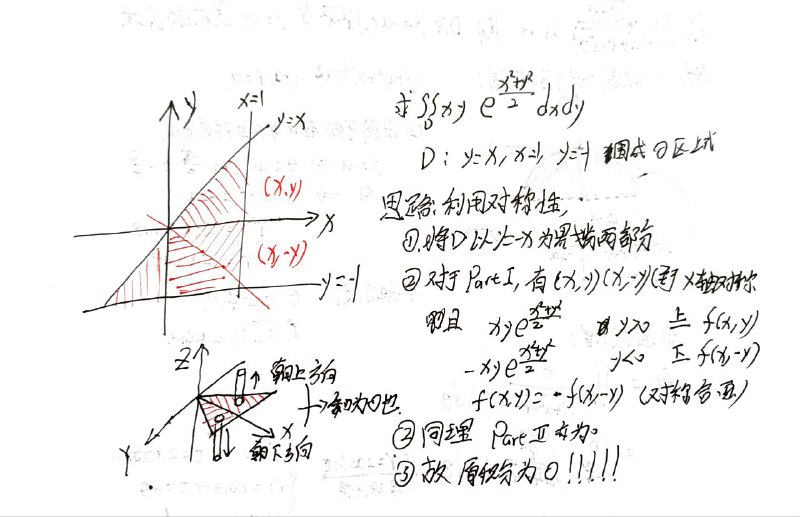 y
x=1
y=x
(x,y)
x
(x,-y)
y=-1
求∬xy e^{\frac{x²+y²}{2}} dxdy
D
D: y=x, x=1, y=-1 围成的区域
思路:利用对称性,
①.将D以y=-x为界划两部分
②对于Part I, 有(x,y)(x,-y)关于x轴对称
而且 xye^{\frac{x²+y²}{2}} y>0 上 f(x,y)
-xye^{\frac{x²+y²}{2}} y<0 下 f(x,-y)
f(x,y)=-f(x,-y) (对称
②同理 Part II 亦为0
③故 原积分为0!!!!!
Z
朝上方向
→和为0也.
X
Y
朝下方向